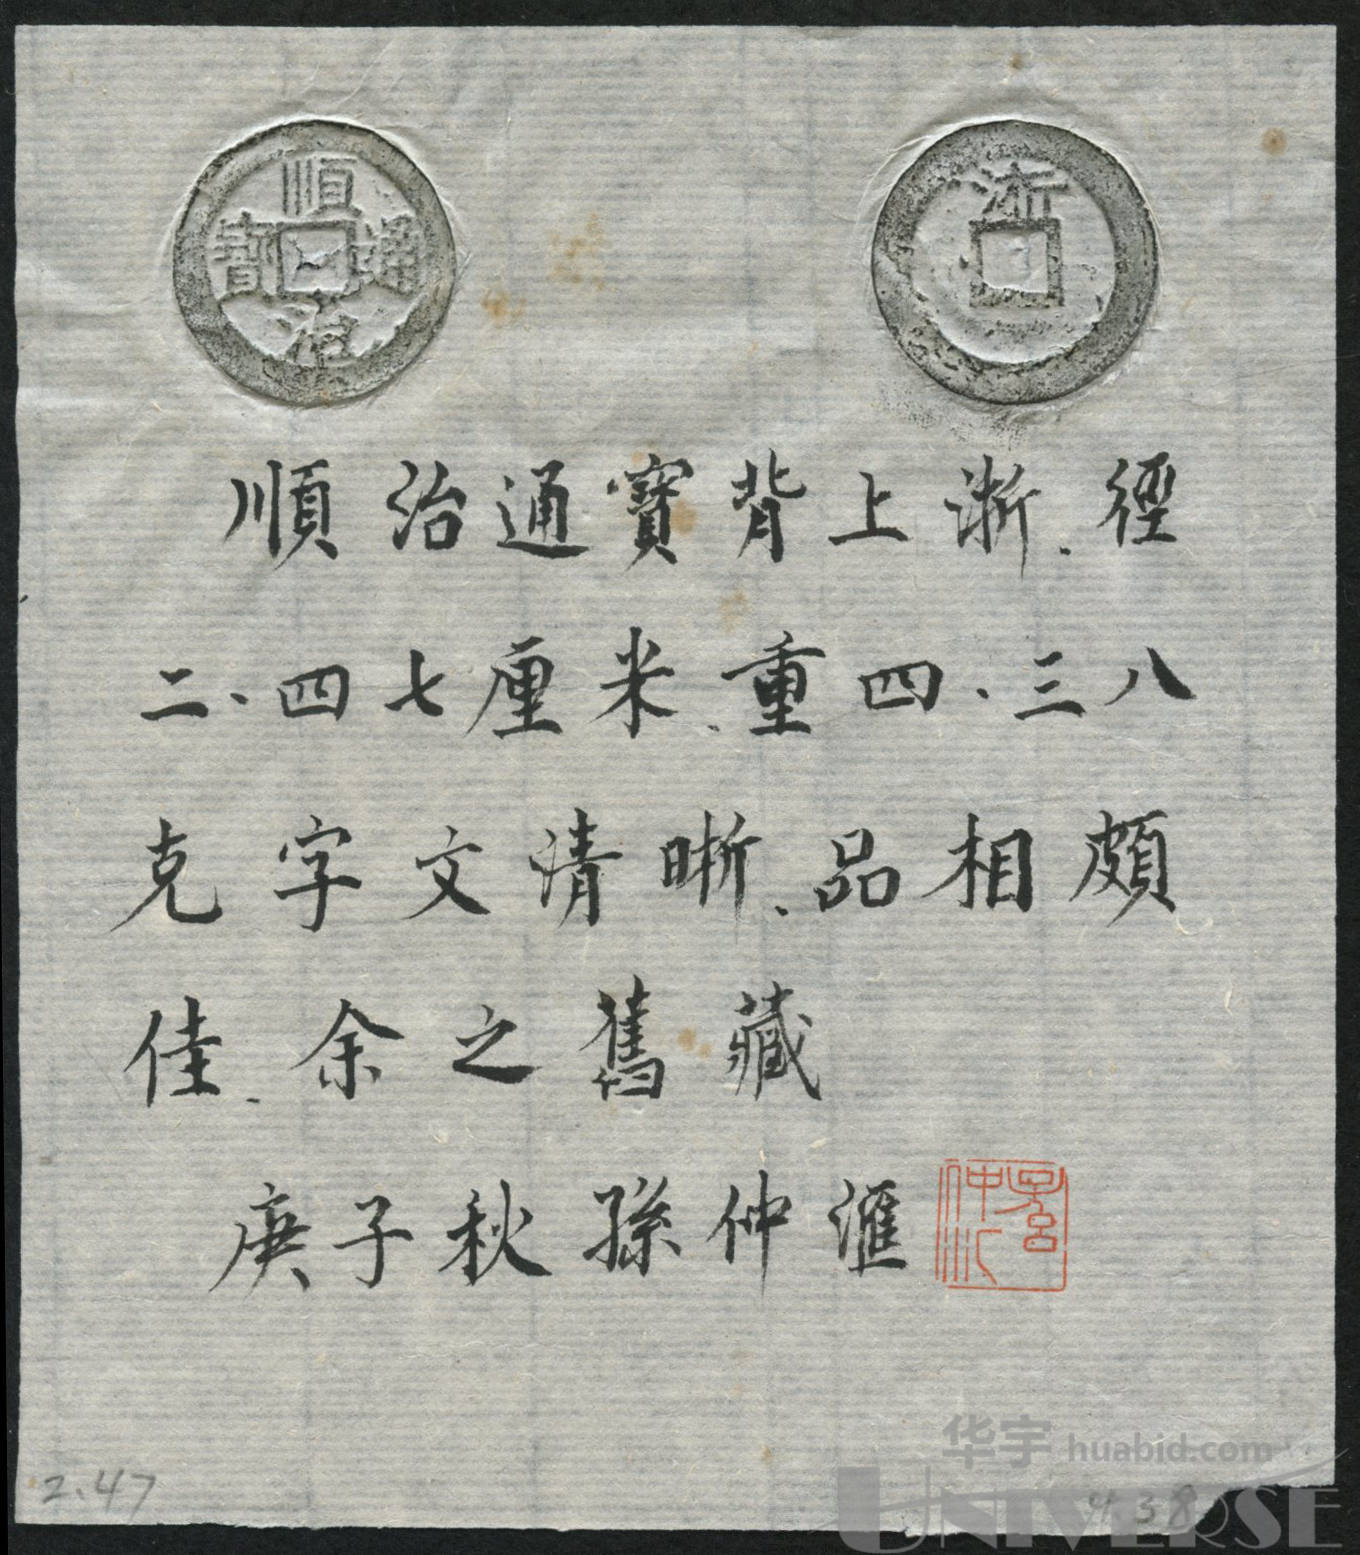 順治通寶
浙
順治通寶背上浙、徑
二、四七厘米、重四、三八
克字文清晰、品相頗
佳、余之舊藏
庚子秋孫仲滙
2.47
4.38
华宇 huabid.com
UNIVERSE